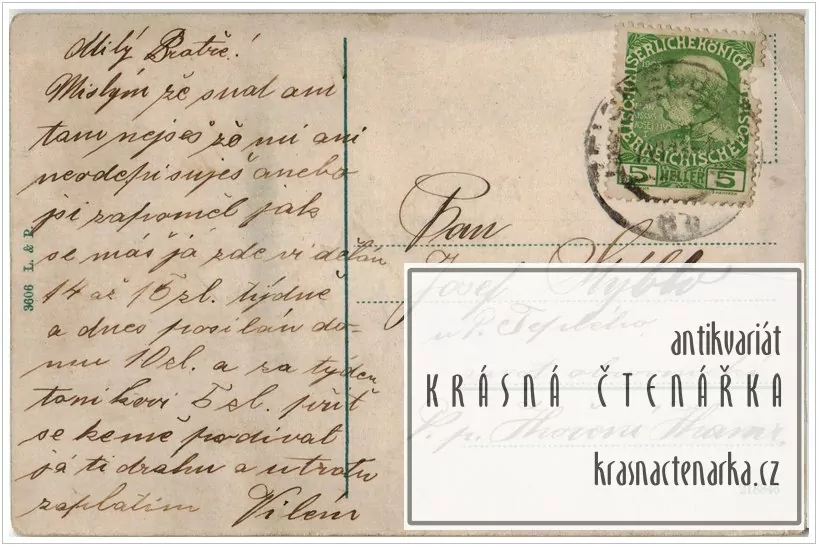 Milý Bratře!
Mislým že snad ani
tam nejseš že mi ani
neodepisuješ anebo
jsi zapoměl jak
se máš já zde vidělán
14 až 15 zl. týdně
a dnes posilán do-
mu 10 zl. a za týden
5 zl. přít
se kemě podívat
já ti dráhu a utratu
zaplatim Vilém
3606 L. & P.
KAISERLICHE KÖNIGL
ÖSTERREICHISCHE
5 HELLER 5
Pan
Josef
u P. Teplého
P. p.
antikvariát
KRÁSNÁ ČTENÁŘKA
krasnactenarka.cz